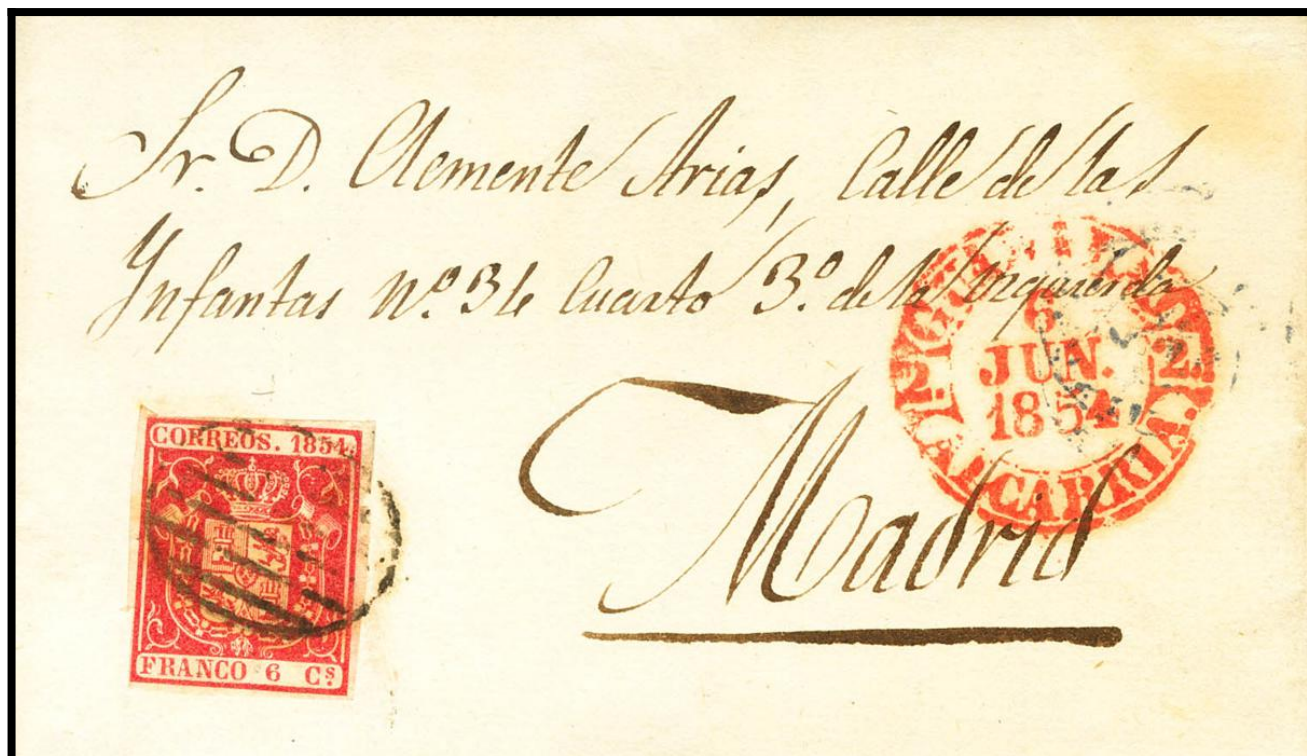 Sr. D. Clemente Arias, Calle de las
Ynfantas nº 34 Cuarto 3º de la Yzquierda
Madrid
6
JUN.
1854
2
ALCARRIA.
CORREOS. 1854.
FRANCO 6 Cs